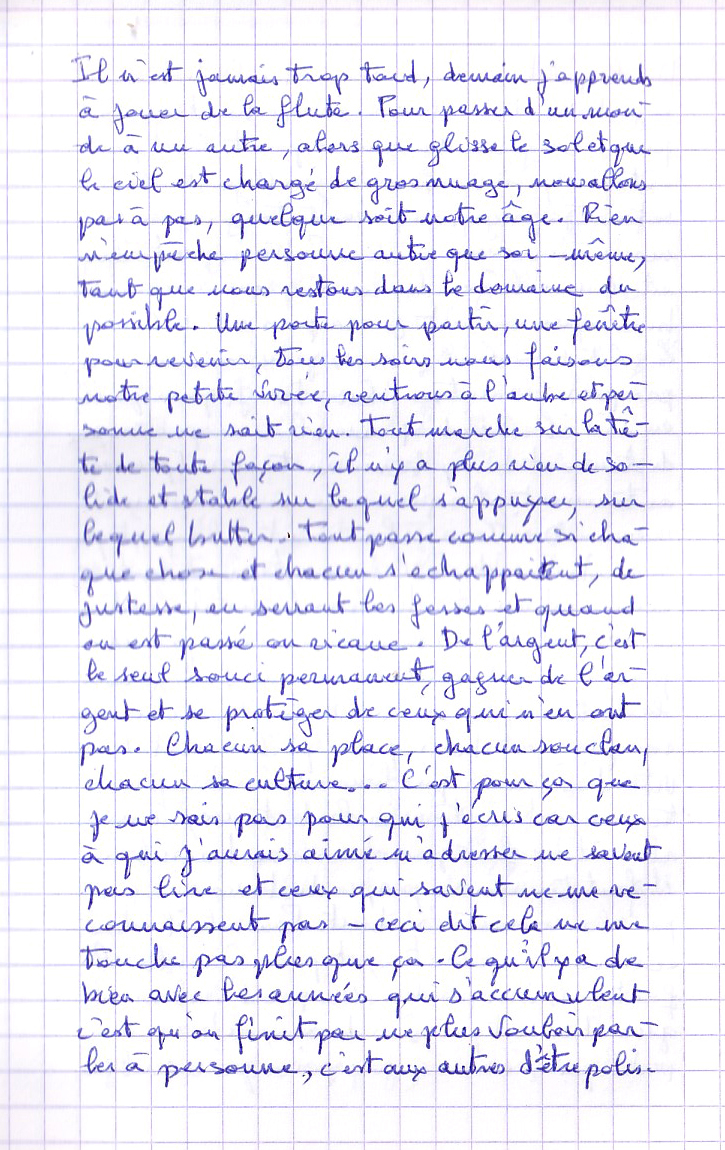 Il n'est jamais trop tard, demain j'apprends
à jouer de la flute. Pour passer d'un mon-
de à un autre, alors que glisse le sol et que
le ciel est chargé de gros nuage, nous allons
pas à pas, quelque soit notre âge. Rien
n'empêche personne autre que soi-même,
tant que nous restons dans le domaine du
possible. Une porte pour partir, une fenêtre
pour revenir, tous les soirs nous faisons
notre petite virée, rentrons à l'aube et per-
sonne ne sait rien. Tout marche sur la tê-
te de toute façon, il n'y a plus rien de so-
lide et stable sur lequel s'appuyer, sur
lequel lutter. Tout passe comme si cha-
que chose et chacun s'échappaient, de
justesse, en serrant les fesses et quand
on est passé on ricane. De l'argent, c'est
le seul souci permanent, gagner de l'ar-
gent et se protéger de ceux qui n'en ont
pas. Chacun sa place, chacun son clan,
chacun sa culture... C'est pour ça que
je ne sais pas pour qui j'écris car ceux
à qui j'aurais aimé m'adresser ne savent
pas lire et ceux qui savent ne me re-
connaissent pas - ceci dit cela ne me
touche pas plus que ça. Ce qu'il y a de
bien avec les années qui s'accumulent
c'est qu'on finit par ne plus vouloir par-
ler à personne, c'est aux autres d'être polis.